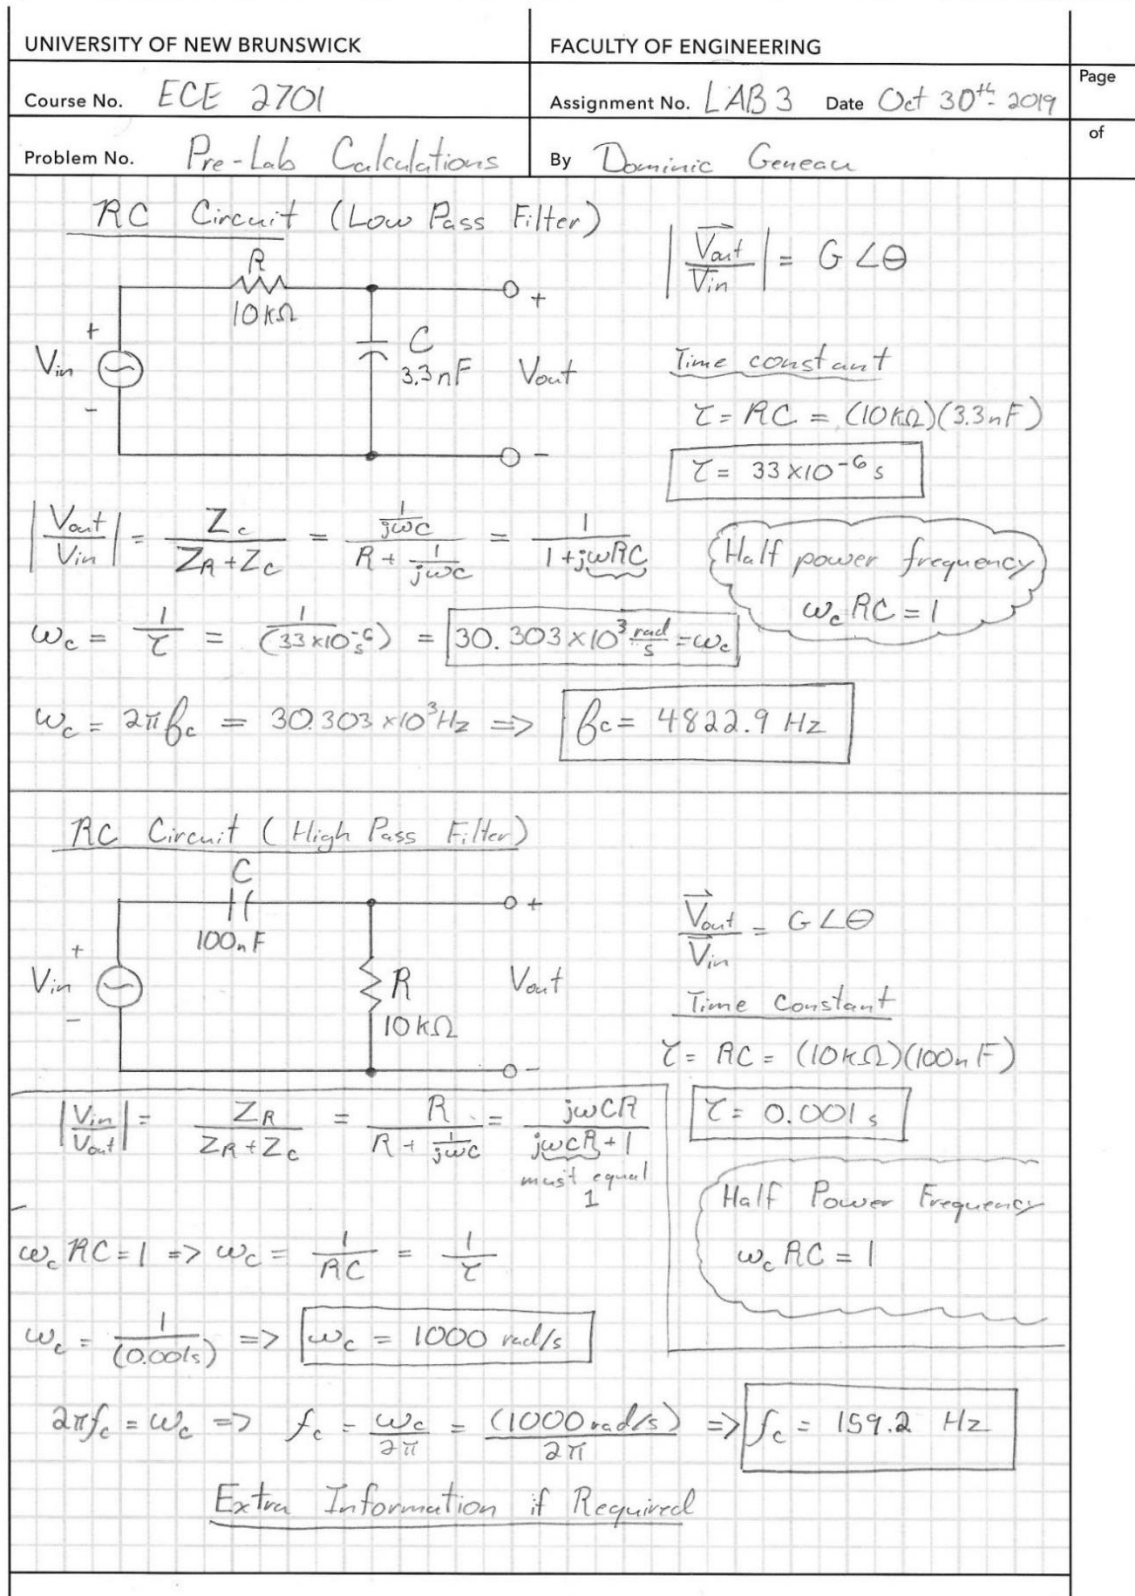 UNIVERSITY OF NEW BRUNSWICK
FACULTY OF ENGINEERING
Course No. ECE 2701
Assignment No. LAB 3 Date Oct 30th 2019
Page
of
Problem No. Pre-Lab Calculations
By Dominic Geneau
RC Circuit (Low Pass Filter)
|V⃗out/Vin| = G∠θ
R
10kΩ
+
Vin
-
C
3.3nF
+
Vout
-
Time constant
τ = RC = (10kΩ)(3.3nF)
τ = 33×10⁻⁶ s
|Vout/Vin| = Zc/(ZR+Zc) = (1/jωC)/(R + 1/jωC) = 1/(1+jωRC)
Half power frequency
ωc RC = 1
ωc = 1/τ = 1/(33×10⁻⁶ s) = 30.303×10³ rad/s = ωc
ωc = 2πfc = 30.303×10³Hz => fc = 4822.9 Hz
RC Circuit (High Pass Filter)
C
100nF
+
Vin
-
R
10kΩ
+
Vout
-
V⃗out/V̄in = G∠θ
Time Constant
τ = RC = (10kΩ)(100nF)
τ = 0.001 s
|Vin/Vout| = ZR/(ZR+Zc) = R/(R + 1/jωC) = jωCR/(jωCR + 1)
must equal
1
Half Power Frequency
ωc RC = 1
ωc RC = 1 => ωc = 1/RC = 1/τ
ωc = 1/(0.001s) => ωc = 1000 rad/s
2πfc = ωc => fc = ωc/2π = (1000 rad/s)/2π => fc = 159.2 Hz
Extra Information if Required